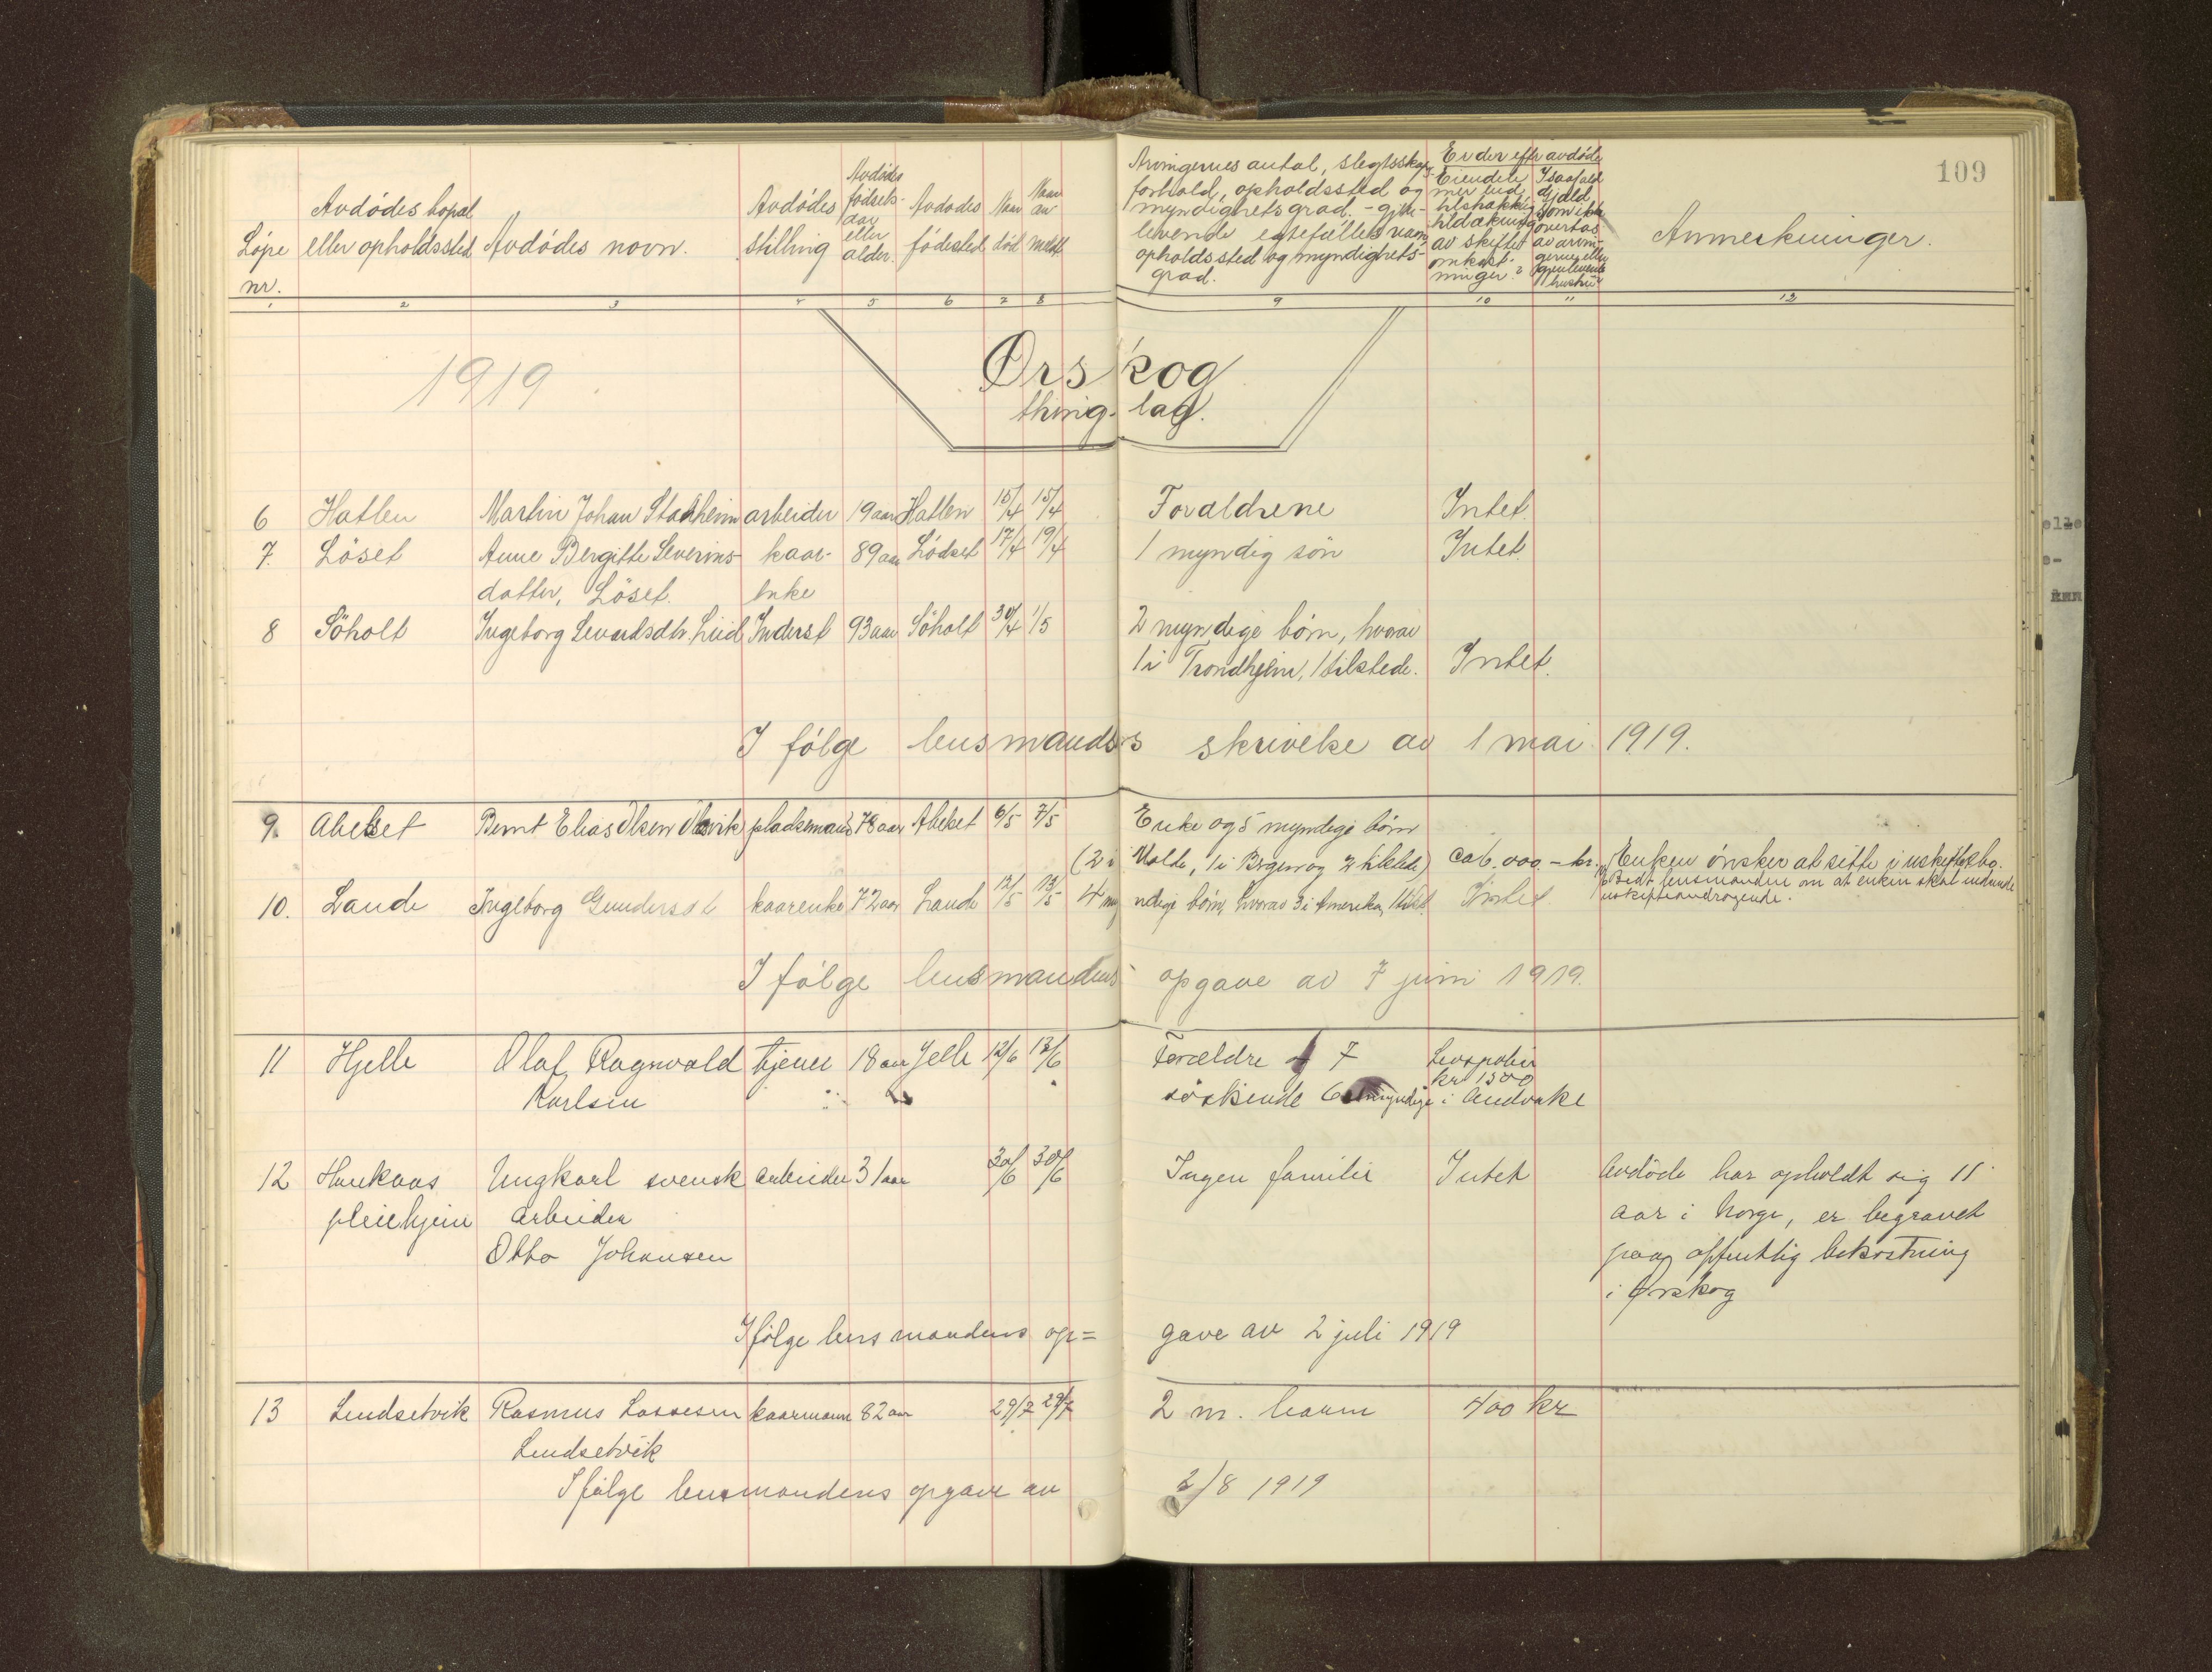 109
Avdödes bopæl eller opholdssted
Avdödes navn.
Avdödes stilling
Avdödes födsels-aar eller alder.
Avdödes födested
Naar död
Naar an meldt
Löpe nr.
Arvingernes antal, slegtsskaps-
forhold, opholdssted og
myndighetsgrad. - gjen-
levende egtefælles navn,
opholdssted og myndighets-
grad.
Er der efter avdöde
Eiendele mer end tilstrækkelig til dækning av skiftet omkost-ninger?
I saafald gjæld som ikke overtas av arvin-gerne eller gjenlevende
Anmerkninger.
1 2 3 4 5 6 7 8 9 10 11 12
1919
Ørskog
thing-lag.
6 Hatlen Martin Johan Stadheim arbeider 19 aar Hatlen 15/4 15/4 Forældrene Intet.
7. Löset Anne Bergitte Severins- kaar- 89 aar Lödset 17/4 19/4 1 myndig sön Intet.
datter, Löset. enke
8 Söholt Ingeborg Sevardsdtr. Liid Inderst 93 aar Söholt 30/4 1/5 2 myndige börn, hvorav
1 i Trondhjem, 1 tilstede. Intet.
I fölge lensmandens skrivelse av 1 mai 1919.
9. Abelset Bernt Elias Olsen pladsmand 78 aar Abelset 6/5 7/5 Enke og 5 myndige börn
(2 i Molde, 1 i Bergen og 2 tilstede) ca 6.000 - kr. Enken önsker at sitte i uskiftet bo.
Bedt lensmanden om at enken skal indsende
10. Lande Ingeborg Gundersdt kaarenke 72 aar Lande 12/5 13/5 4 myndige börn, hvorav 3 i Amerika, 1 tilst. Intet uskifteandragende.
I fölge lensmandens opgave av 7 juni 1919.
11 Hjelle Olaf Ragnvald tjener 18 aar Jelle 12/6 13/6 Forældre og 7 Livspolise
kr 1500
Karlsen söskende 6 umyndige i Andvake
12 Haukaas Ungkarl svensk arbeider 31 aar 30/6 30/6 Ingen familie Intet Avdöde har opholdt sig 11
pleiehjem arbeider aar i Norge, er begravet
Otto Johansen paa offentlig bekostning
i Ørskog
Ifölge lensmandens op= gave av 2 juli 1919
13 Lindsetvik Rasmus Lassesen kaarmann 82 aar 29/7 29/7 2 m. barn 400 kr
Lindsetvik
Ifölge lensmandens opgave av 2/8 1919